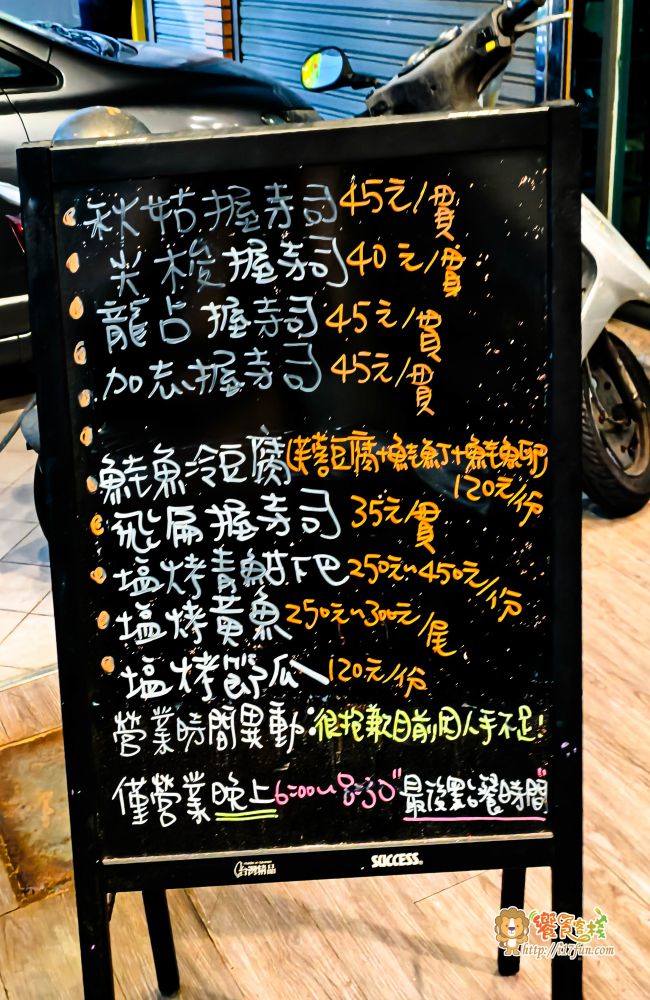 秋姑握寿司45元/貫
尖梭握寿司40元/貫
龍占握寿司45元/貫
加志握寿司45元/貫
鮭魚冷豆腐(芙蓉豆腐+鮭魚丁+鮭魚卵)
120元/份
飛扁握寿司35元/貫
塩烤青魽下巴250元~450元/份
塩烤黃魚250元~300元/尾
塩烤節瓜120元/份
營業時間異動:很抱歉目前因人手不足!
僅營業晚上6:00~8:30"最後點餐時間"
台灣精品 SUCCESS®
饗食客棧
http://i17fun.com